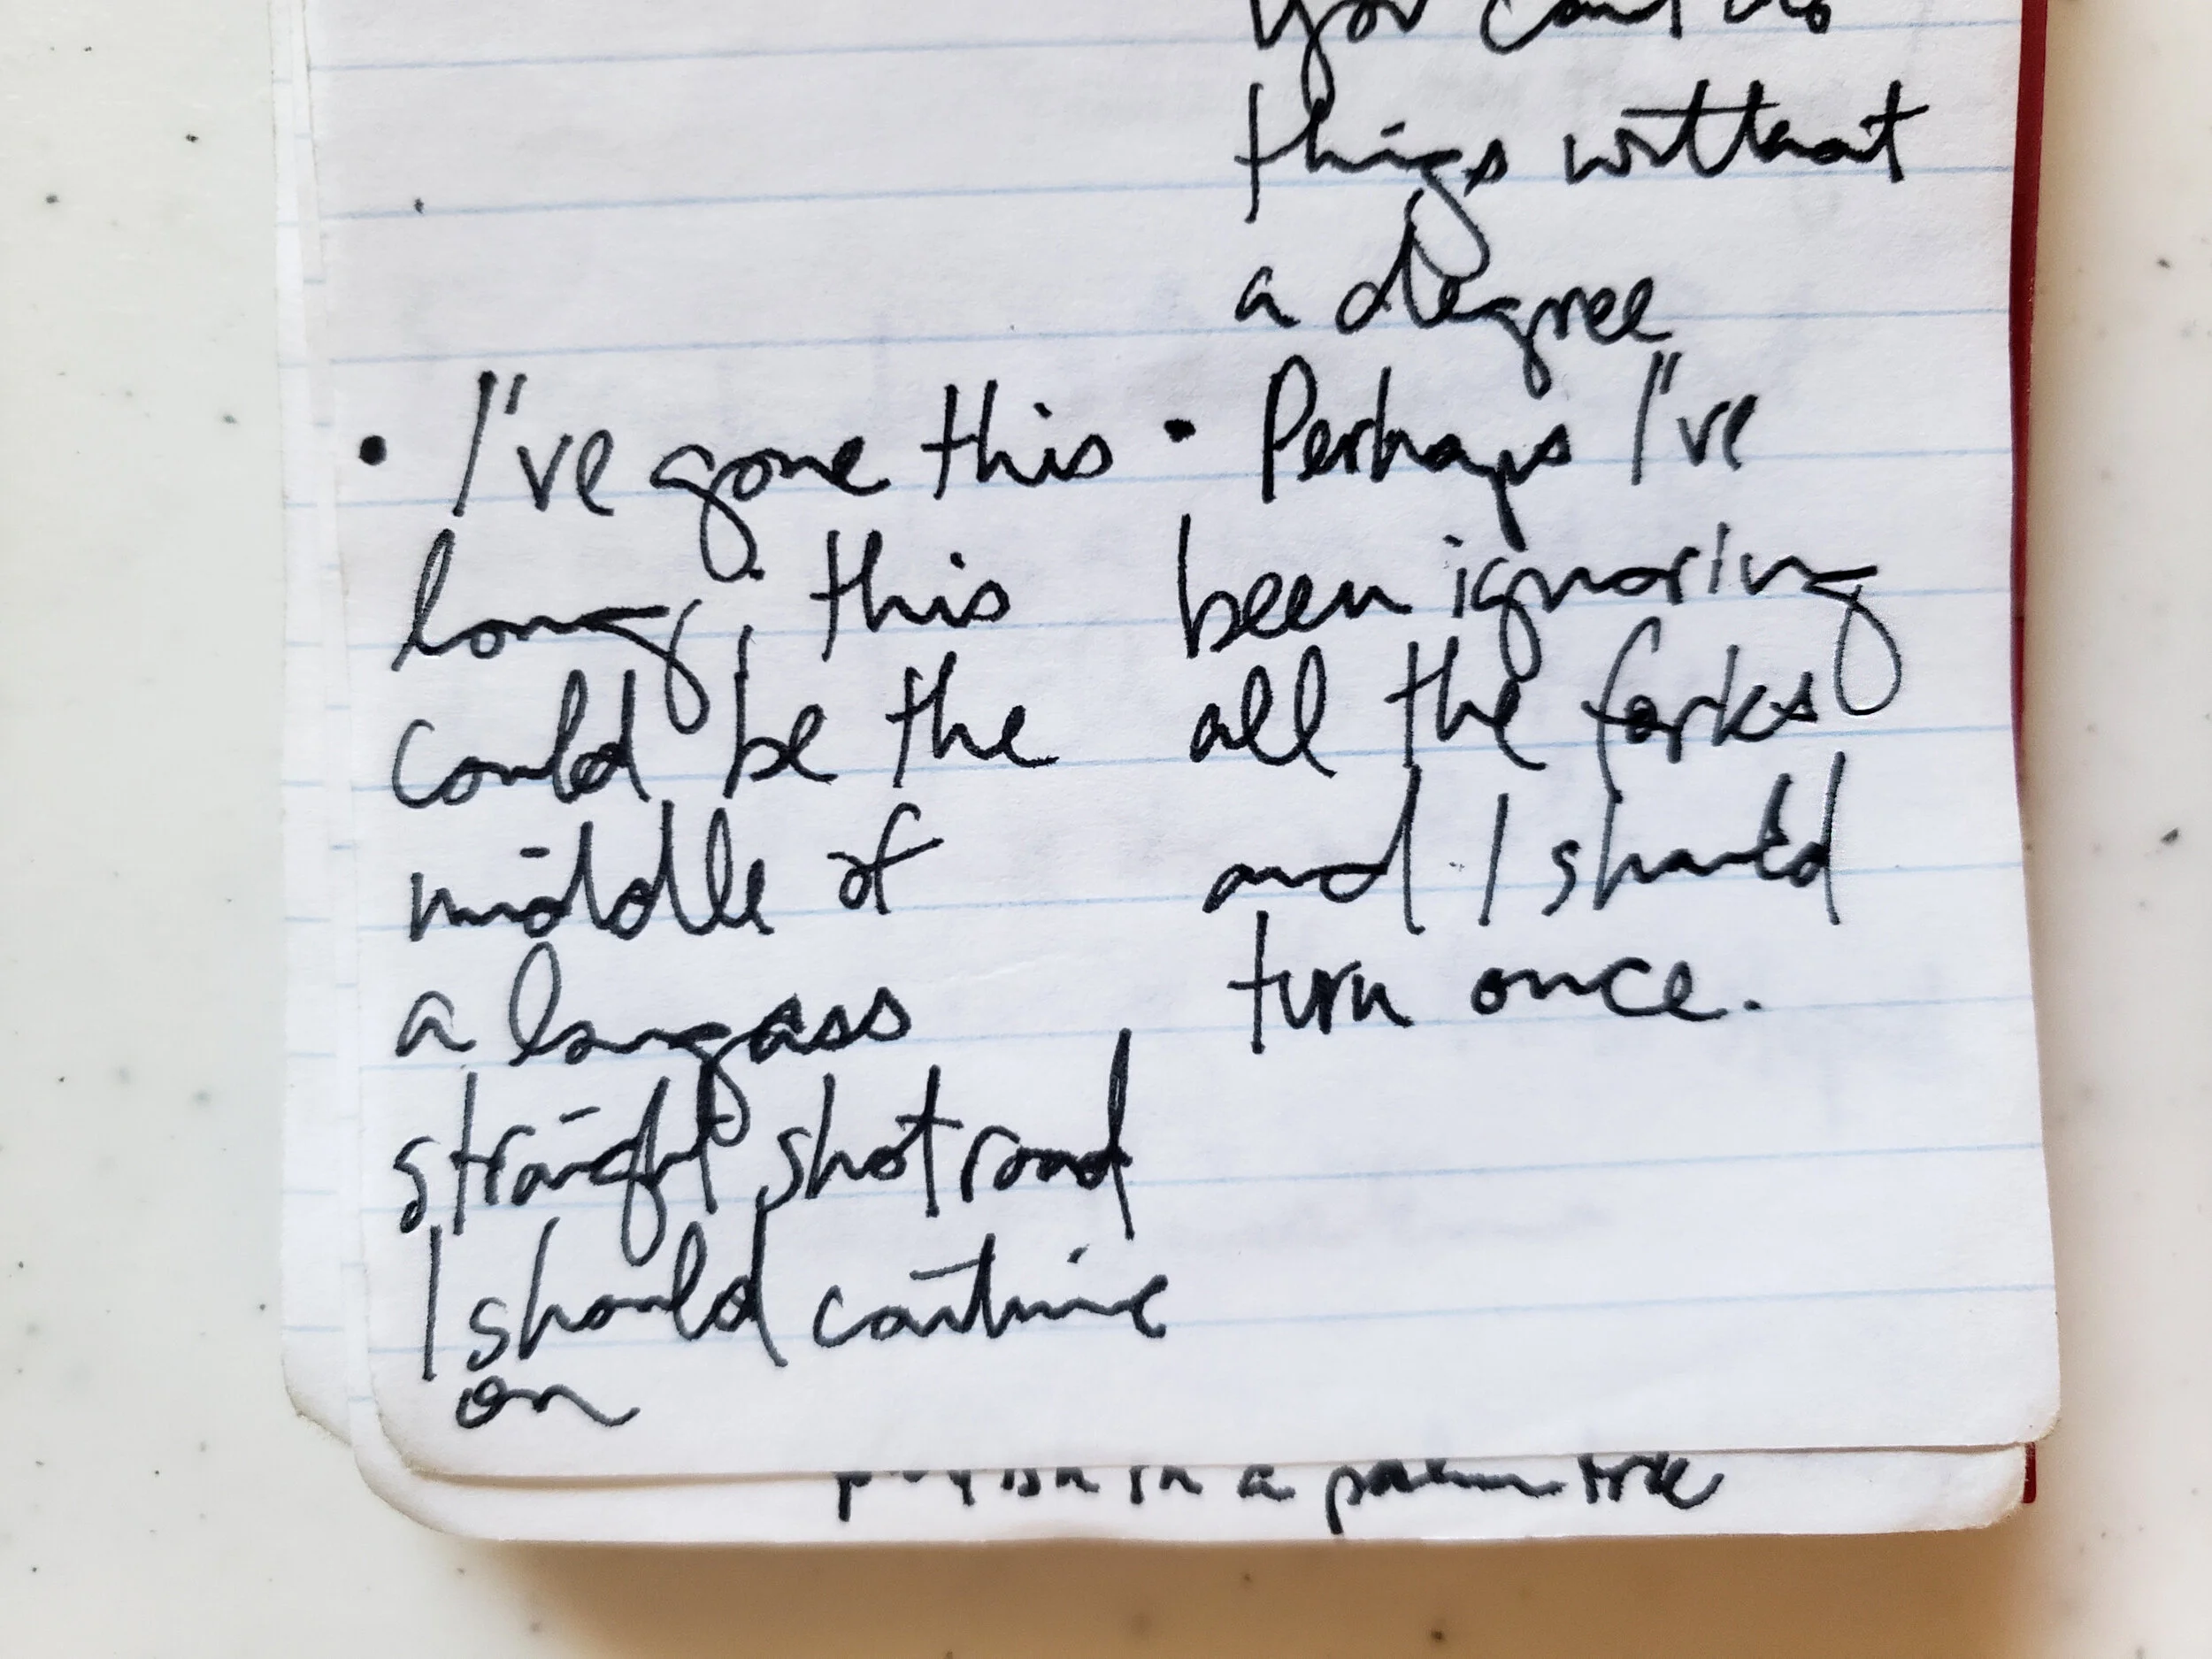 you can't do
things without
a degree
• I've gone this
long, this
could be the
middle of
a longass
straight shot road
I should continue
on
• Perhaps I've
been ignoring
all the forks
and I should
turn once.
in a palm tree